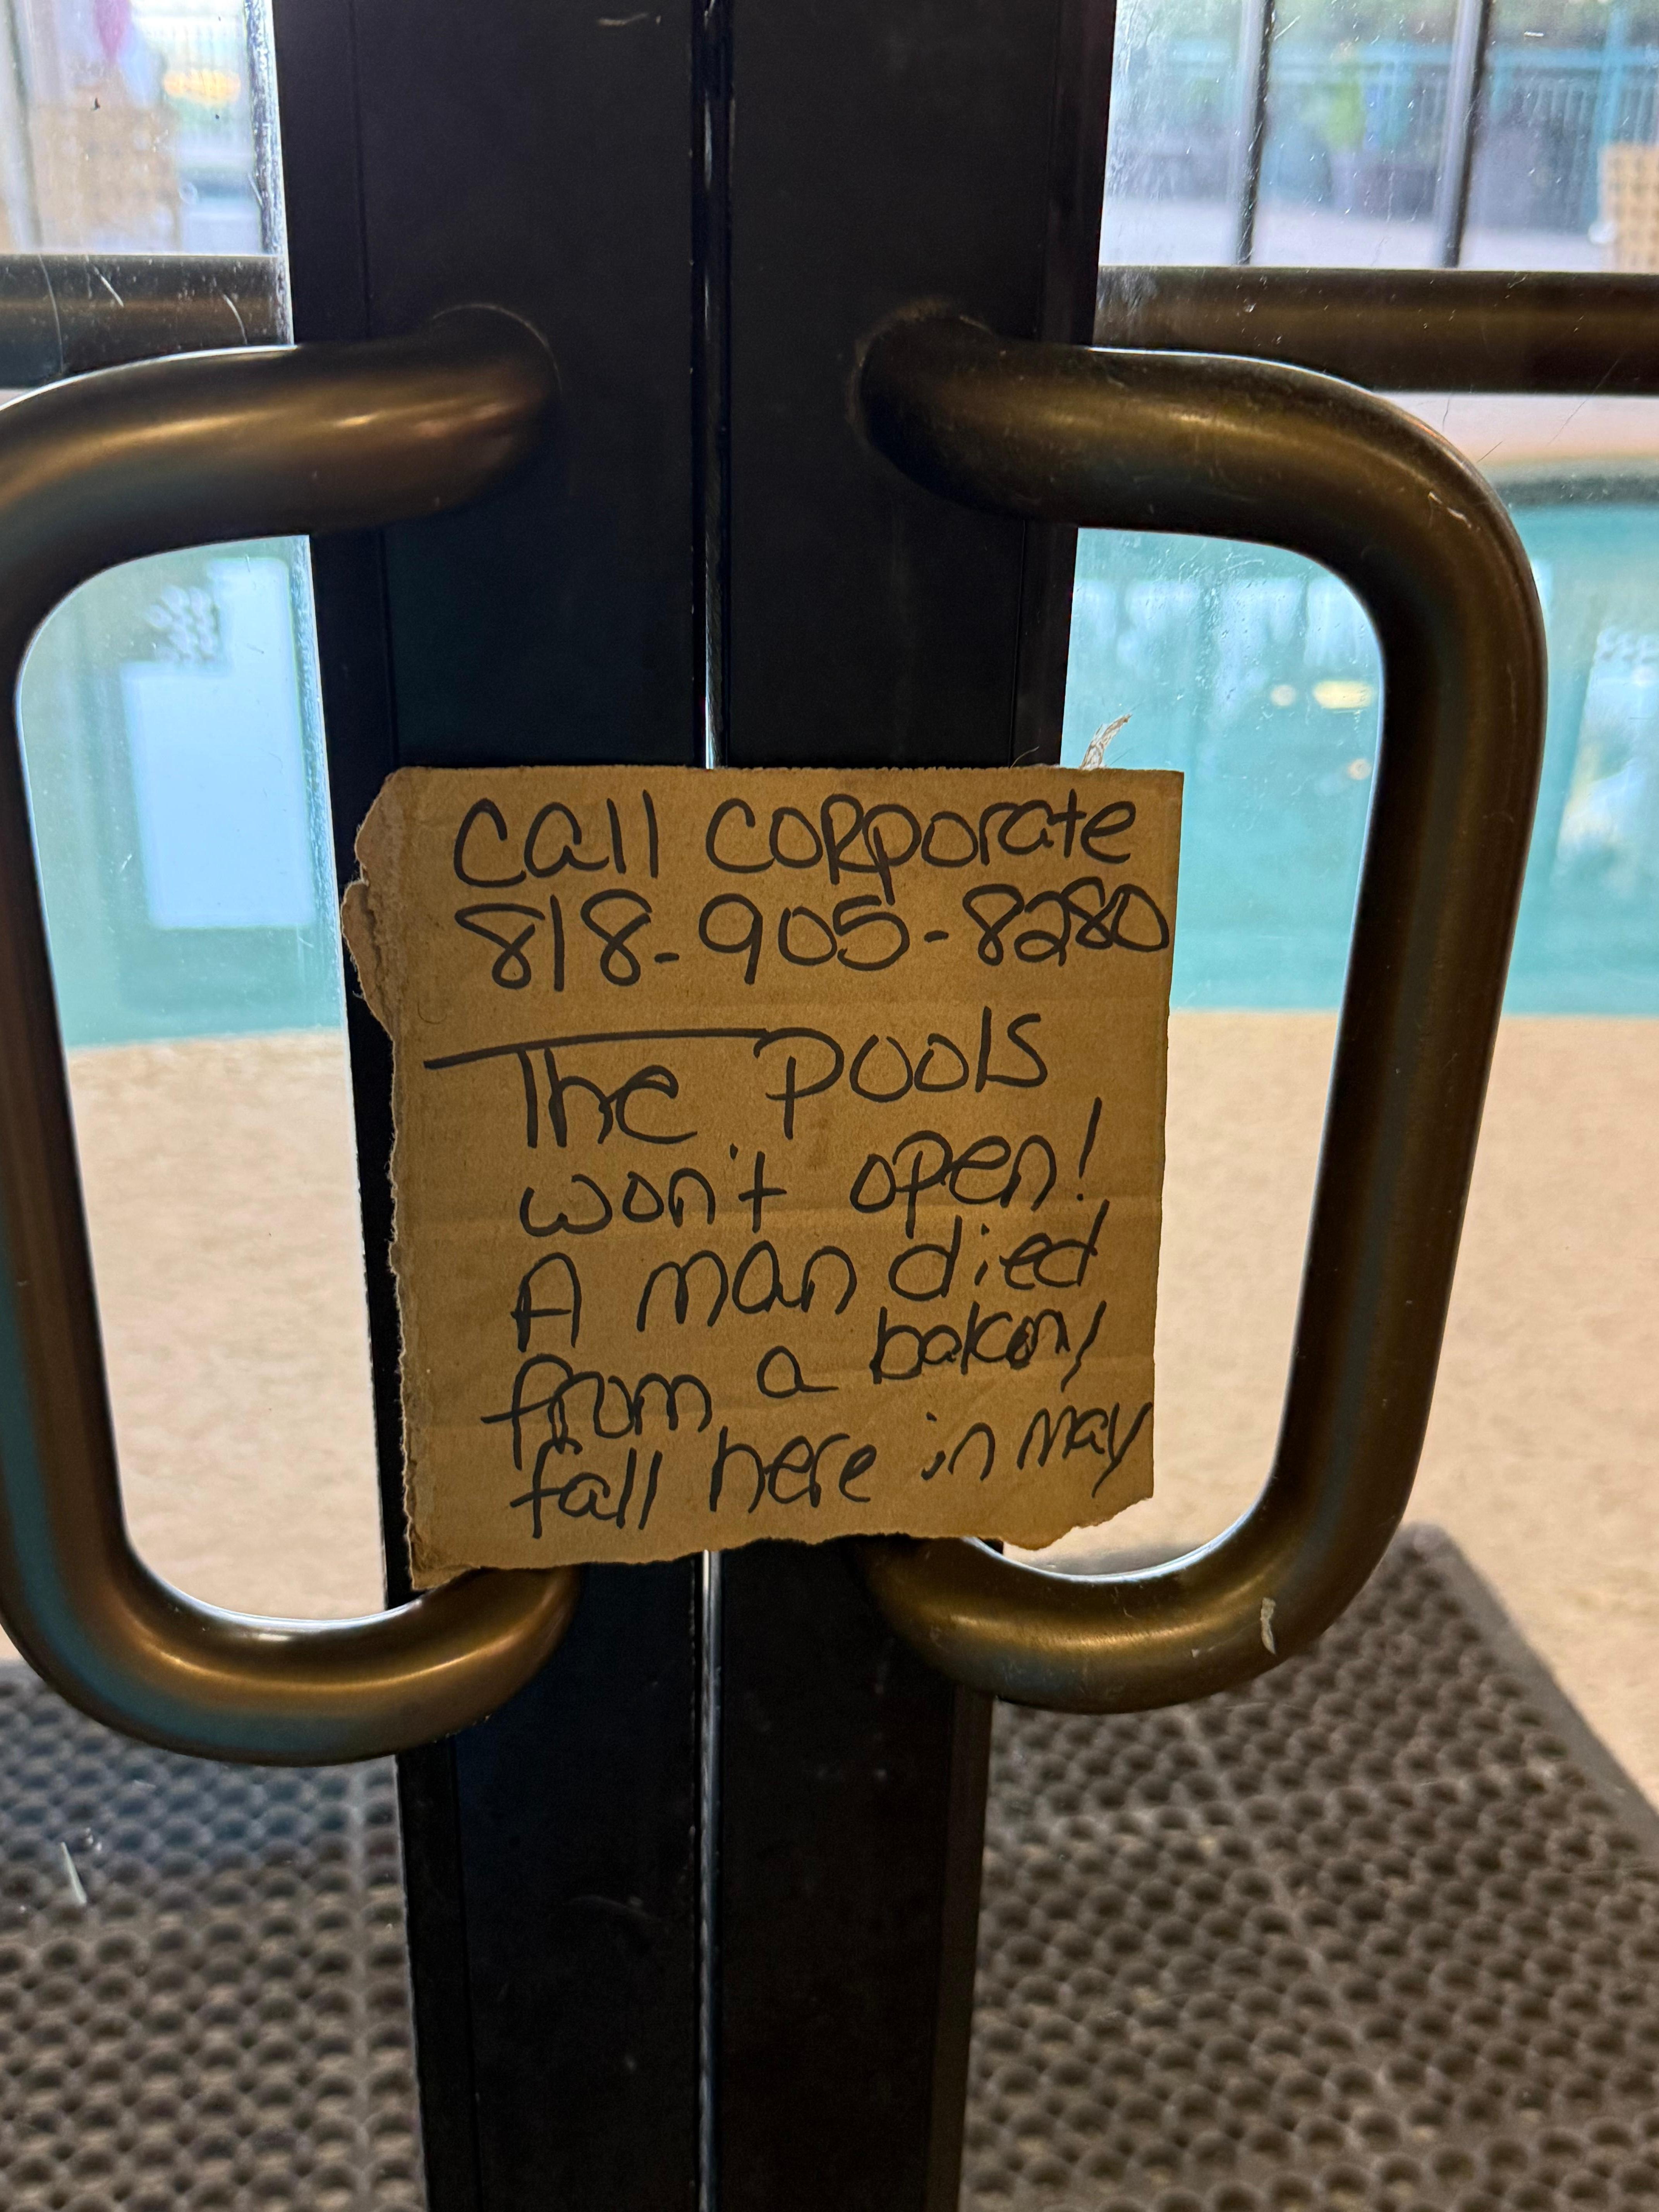 Call corporate
818-905-8280
The pools
won't open!
A man died
from a balcony
fall here in may